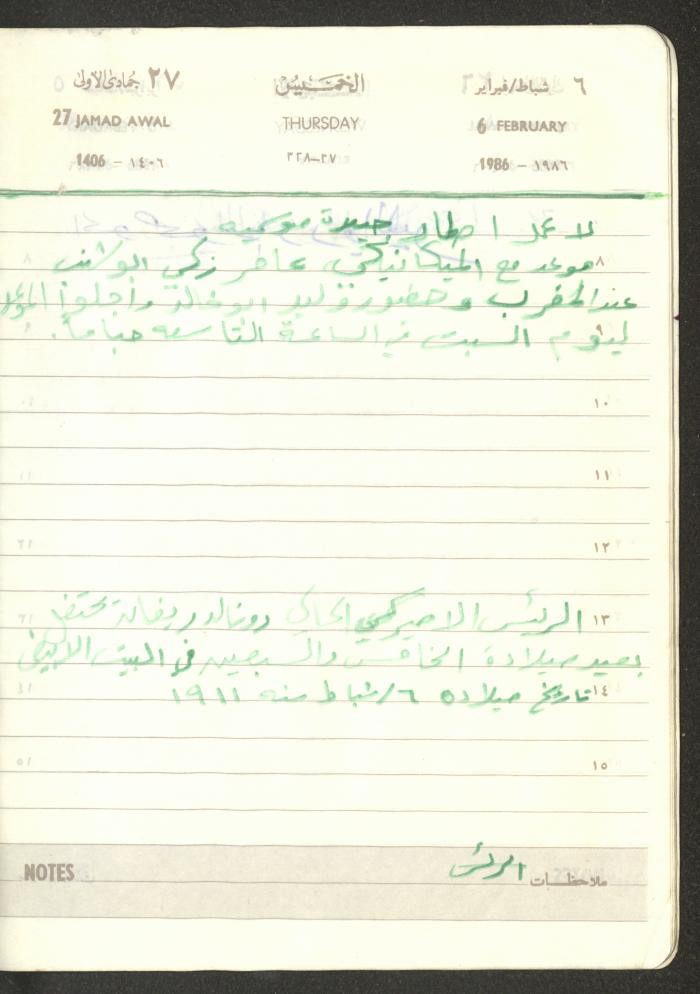 ٦ شباط/فبراير الخميس ٢٧ جمادى الاولى
6 FEBRUARY THURSDAY 27 JAMAD AWAL
1986 - ١٩٨٦ ٣٧-٣٢٨ 1406 - ١٤٠٦
لا عمل امطار جيدة موسميه
٨ موعد مع الميكانيكي زكي ابو
عند المغرب وحضور وليد ابو خالد واجلوا الموعد
ليوم السبت في الساعة التاسعه صباحاً.
١٠
١١
١٢
١٣ الرئيس الاميركي الحالي رونالد ريغان يحتفل
بعيد ميلادة الخامس والسبعين في البيت الابيض
١٤ تاريخ ميلاده ٦/شباط سنه ١٩١١
١٥
ملاحظات الرئس NOTES